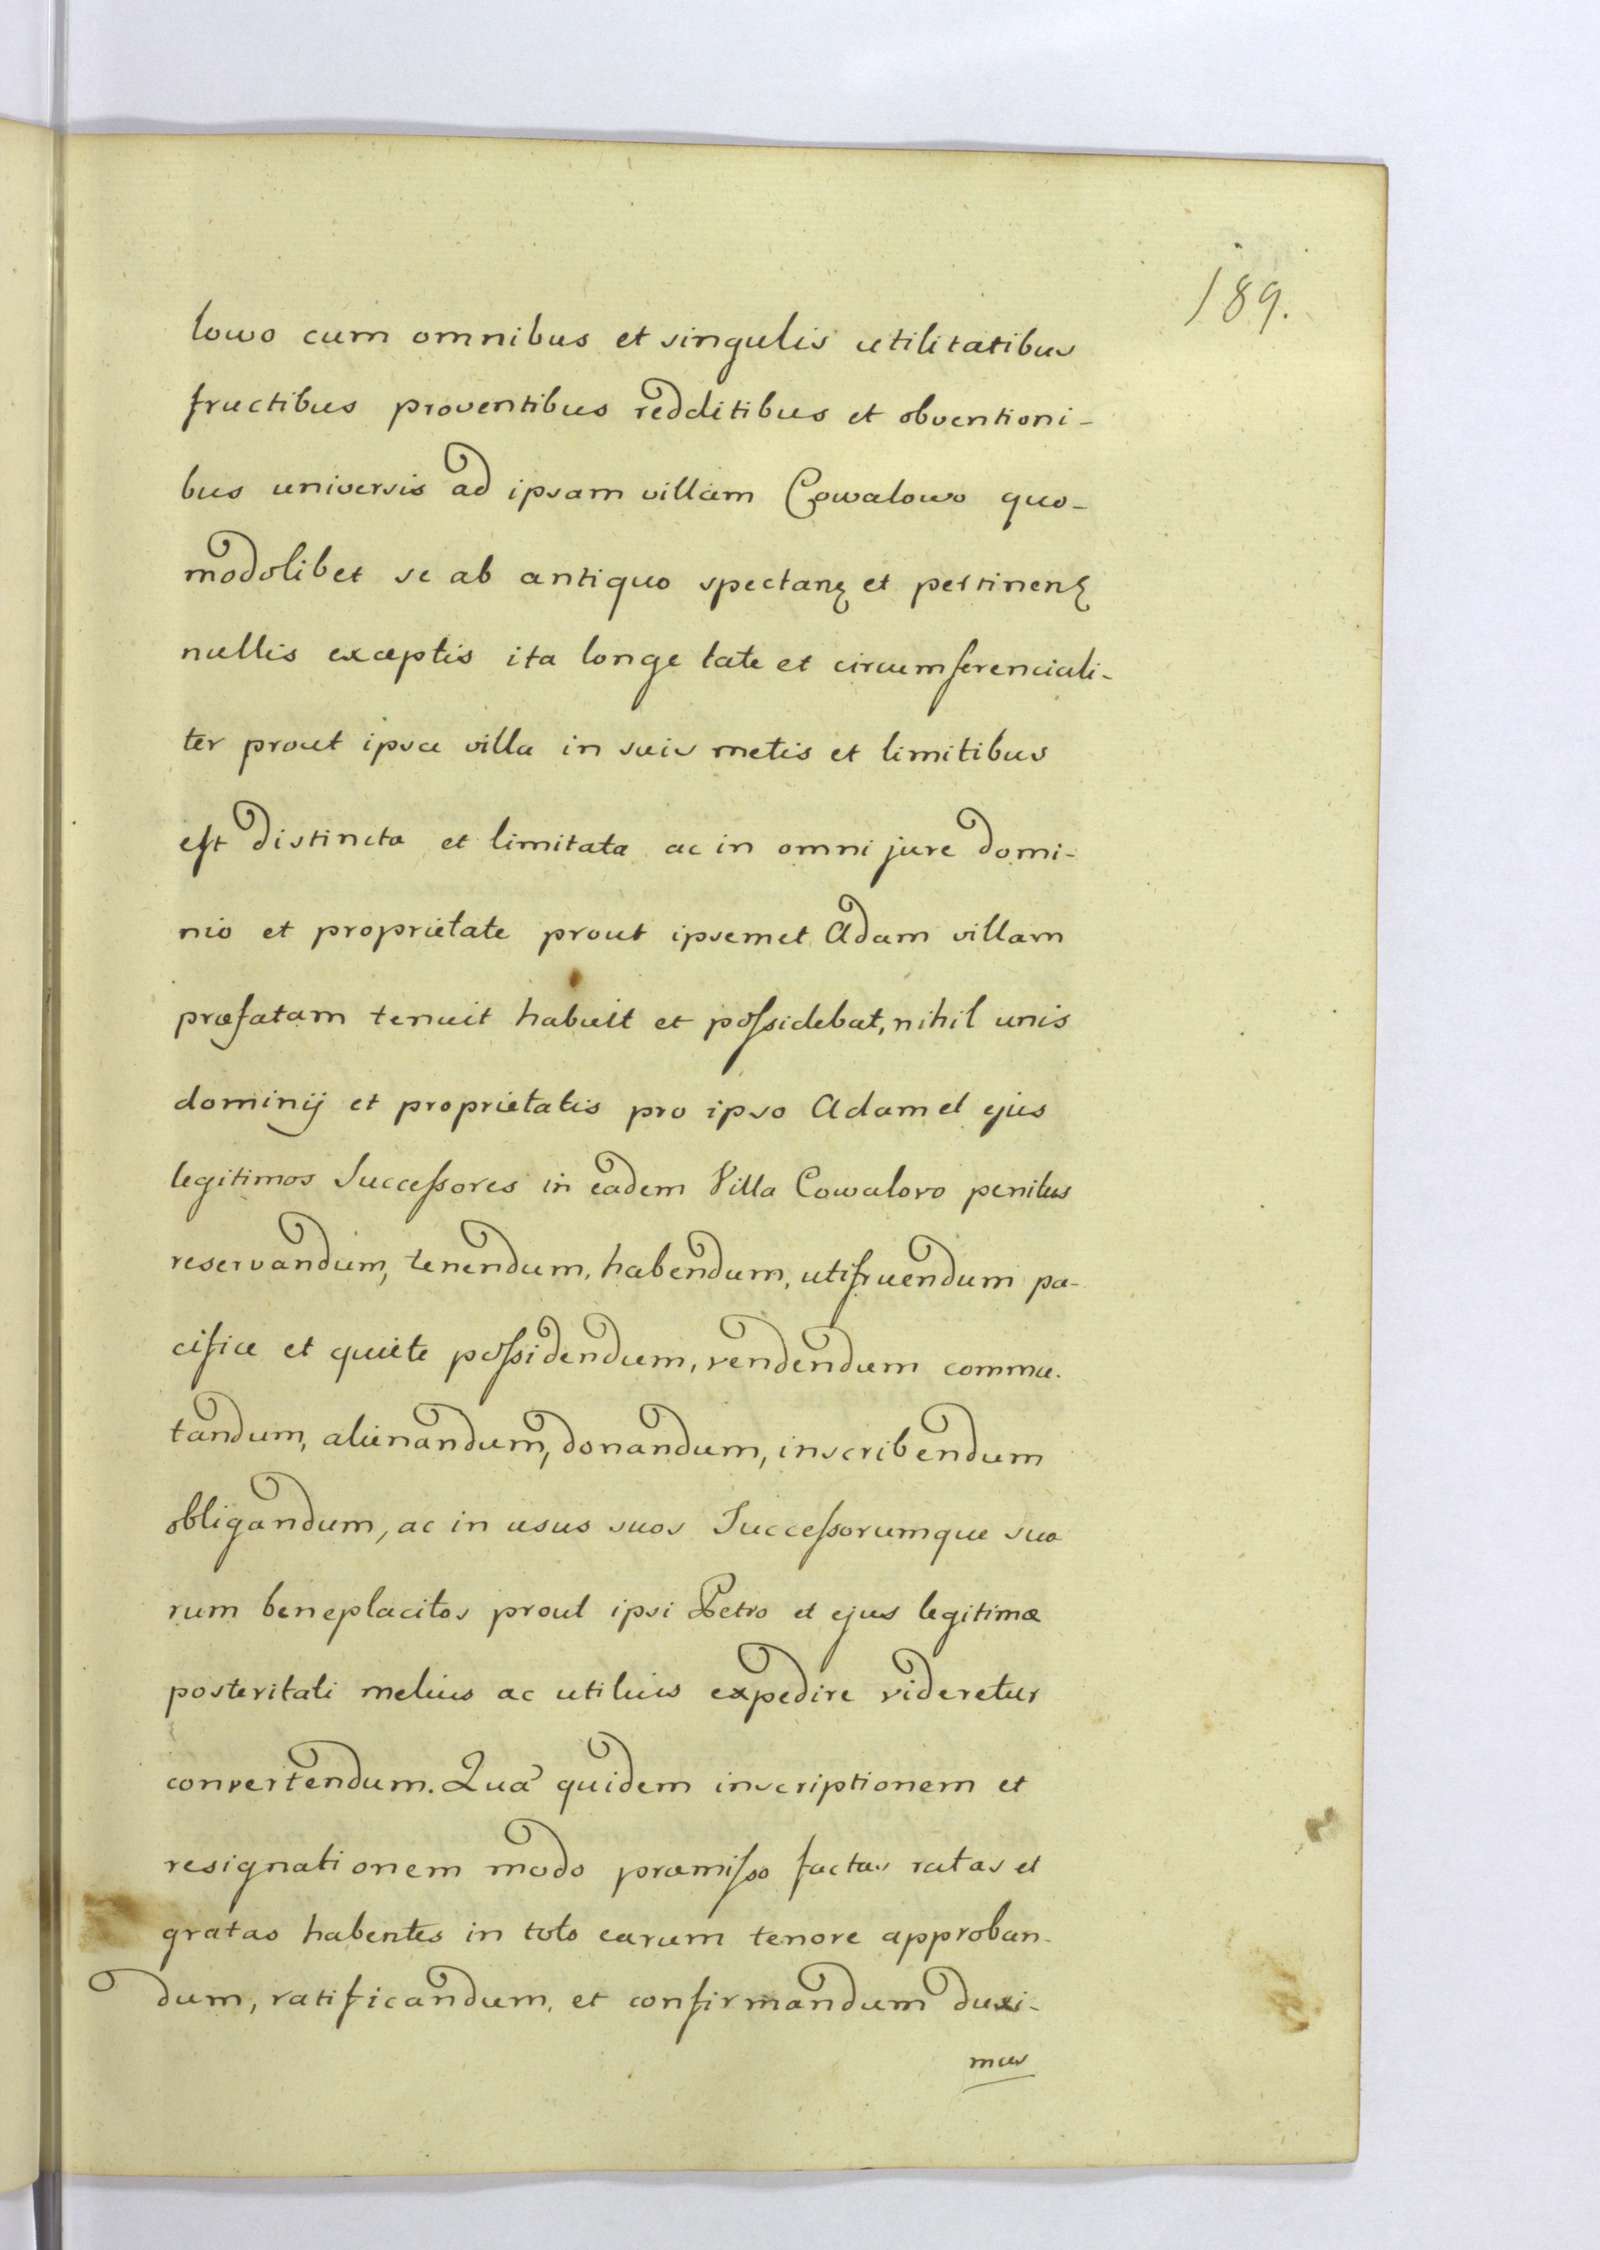 189.
lowo cum omnibus et singulis utilitatibus
fructibus proventibus redditibus et obventioni-
bus universis ad ipsam villam Cowalowo quo-
modolibet se ab antiquo spectanꝫ et pertinenꝫ
nullis exceptis ita longe late et circumferenciali-
ter prout ipsa villa in suis metis et limitibus
est distincta et limitata ac in omni jure domi-
nio et proprietate prout ipsemet Adam villam
præfatam tenuit habuit et possidebat, nihil unis
dominij et proprietatis pro ipso Adam et ejus
legitimos Successores in eadem Villa Cowalovo penitus
reservandum, tenendum, habendum, utifruendum pa-
cifice et quiete possidendum, vendendum commu-
tandum, alienandum, donandum, inscribendum
obligandum, ac in usus suos Successorumque suo
rum beneplacitos prout ipsi Petro et ejus legitimæ
posteritati melius ac utilius expedire videretur
convertendum. Quã quidem inscriptionem et
resignationem modo præmisso factas ratas et
gratas habentes in toto earum tenore approban-
dum, ratificandum, et confirmandum duxi-
mus